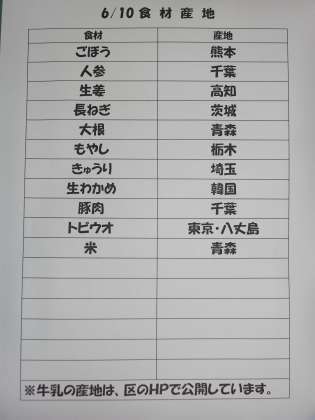 6/10食材産地
食材 産地
ごぼう 熊本
人参 千葉
生姜 高知
長ねぎ 茨城
大根 青森
もやし 栃木
きゅうり 埼玉
生わかめ 韓国
豚肉 千葉
トビウオ 東京・八丈島
米 青森
※牛乳の産地は、区のHPで公開しています。